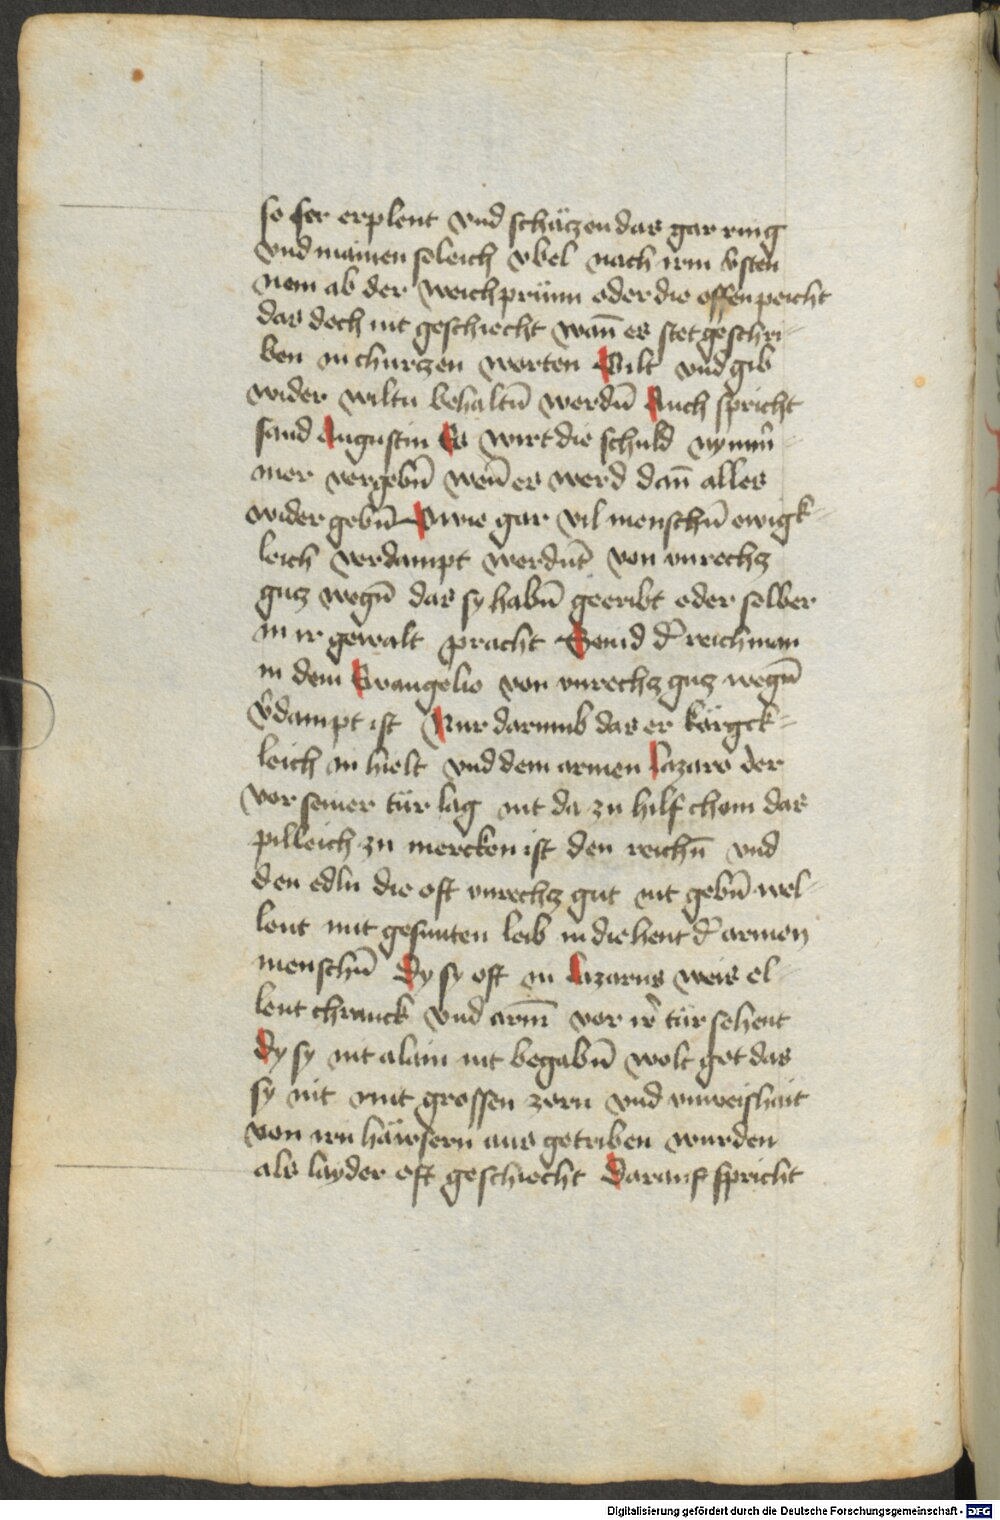 so ser erplent vnd schäczen das gar ring
vnd mainen seleich vbel nach irm v̄sten
nem ab der weichprünn oder die offenpeicht
das doch nit geschiecht wan̄ es stet geschri-
ben in churczen worten Gilt vnd gib
wider wiltu behaltn̄ werdn̄ Auch spricht
sand Augustin Es wirt die schuld nymm̄-
mer vergebn̄ wen̄ es werd dan̄ alles
wider gebn̄ O wie gar vil menschn̄ ewigk-
leich verdampt werdnt̄ von vnrechcz
gucz wegn̄ das sy habn̄ geeribt oder selber
in ir gewalt pracht Seind d̄ reich man
in dem Ewangelio von vnrechcz gucz wegn̄
v̄dampt ist Nur darumb das er kärgck-
leich in hielt vnd dem armen Lazaro der
vor seiner tür lag nit da zu hilf chom das
pilleich zu mercken ist den reichn̄ vnd
den edln die oft vnrechcz gut nit gebn̄ wel-
lent mit gesunten leib in die hent d̄ armen
menschn̄ Dy sy oft in Lazarus weis el-
lent chranck vnd arm̄ vor ir̄ tür sehent
Dy sy nit alain nit begabn̄ wolt got das
sy nit mit grossen zorn vnd vnweishait
von irn häwsern aus getriben wurden
als layder oft geschiecht Darauf spricht
Digitalisierung gefördert durch die Deutsche Forschungsgemeinschaft - DFG